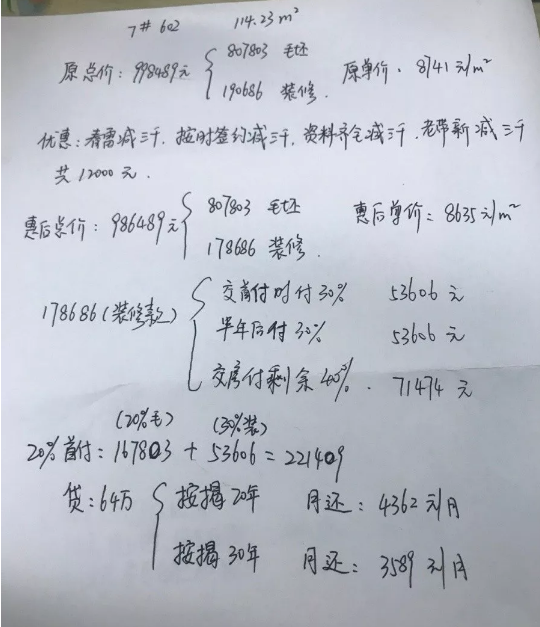 7# 602 114.23m²
原总价：998489元 { 807803 毛坯 原单价：8741元/m²
190686 装修.
优惠：看需减三千，按时签约减三千，资料齐全减三千，老带新减三千
共12000元.
惠后总价：986489元 { 807803 毛坯 惠后单价：8635元/m²
178686 装修.
178686(装修款) { 交首付时付30% 53606元
半年后付30% 53606元
交房付剩余40%. 71474元
(20%毛) (30%装)
20%首付：167803 + 53606 = 221409
贷：64万 { 按揭20年 月还：4362元/月
按揭30年 月还：3589元/月